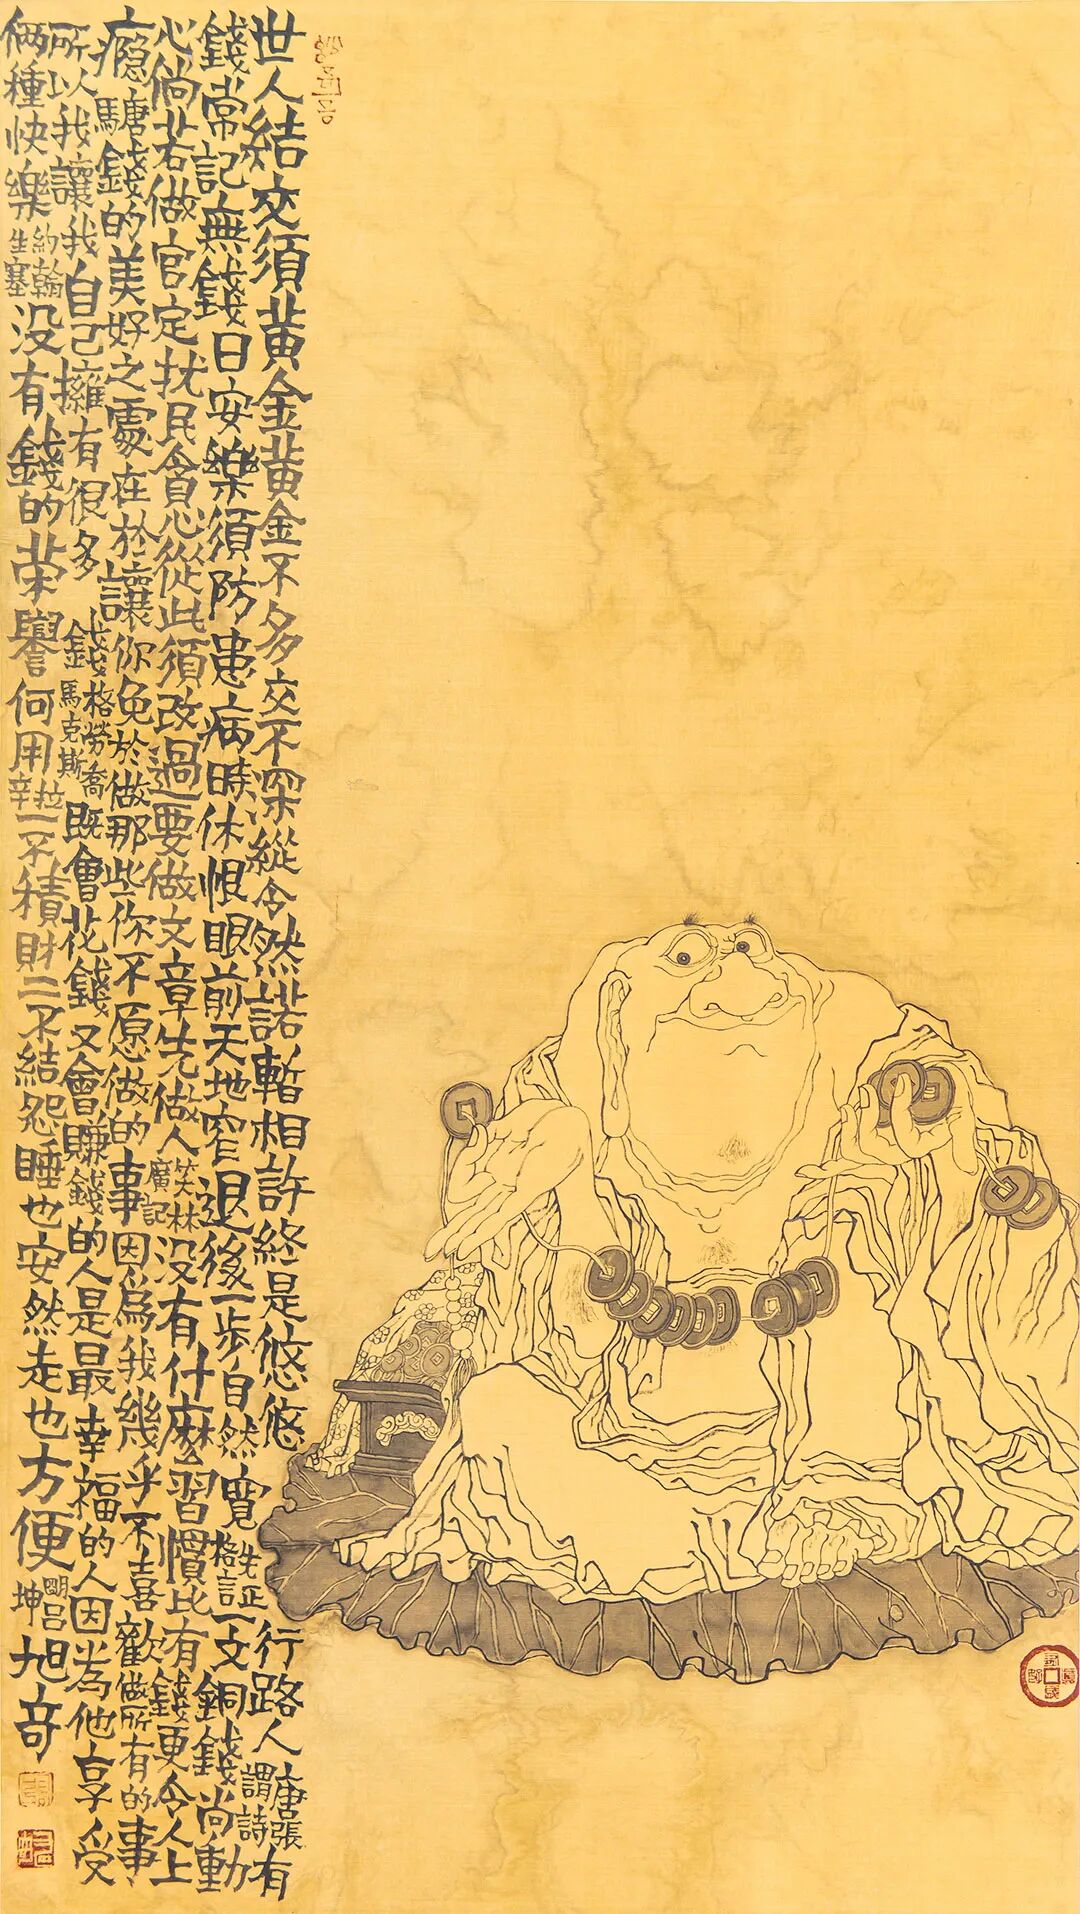 世人結交須黃金黃金不多交不深縱令然諾暫相許終是悠悠行路人唐張謂詩有
錢常記無錢日安樂須防患病時休恨眼前天地窄退後一步自然寬先正格言一文銅錢尚動
心倘若做官定扰民貪心從此須改過要做文章先做人笑林廣記没有什麽習慣比有錢更令人上
瘾唐馬錢的美好之處在於讓你免於做那些你不愿做的事因爲我幾乎不喜歡做所有的事
所以我讓我自己擁有很多錢格勞喬馬克斯既會花錢又會賺錢的人是最幸福的人因为他享受
俩種快樂約翰生塞没有錢的荣譽何用拉辛一不積財二不結怨睡也安然走也方便明吕坤旭奇